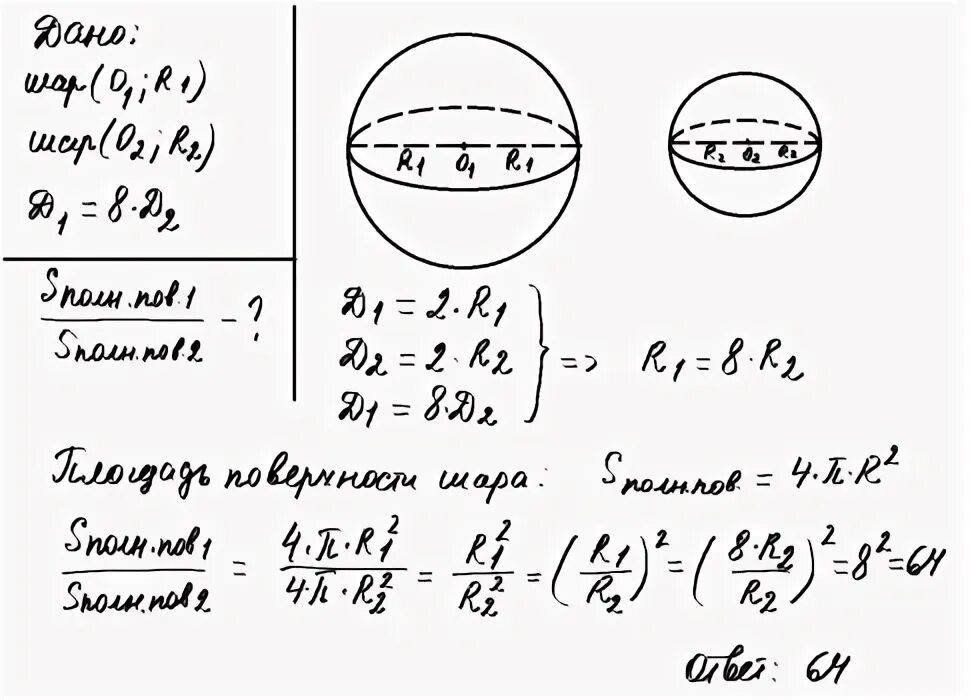 Дано:
шар(O₁; R1)
шар(O₂; R₂)
D₁ = 8·D₂
Sполн.пов.1 / Sполн.пов.2 - ?
R₁ O₁ R₁
R₂ O₂ R₂
D₁ = 2·R₁
D₂ = 2·R₂
D₁ = 8·D₂
} => R₁ = 8·R₂
Площадь поверхности шара: Sполн.пов. = 4·π·R²
Sполн.пов1 / Sполн.пов2 = 4·π·R₁² / 4·π·R₂² = R₁² / R₂² = (R₁ / R₂)² = (8·R₂ / R₂)² = 8² = 64
Ответ: 64